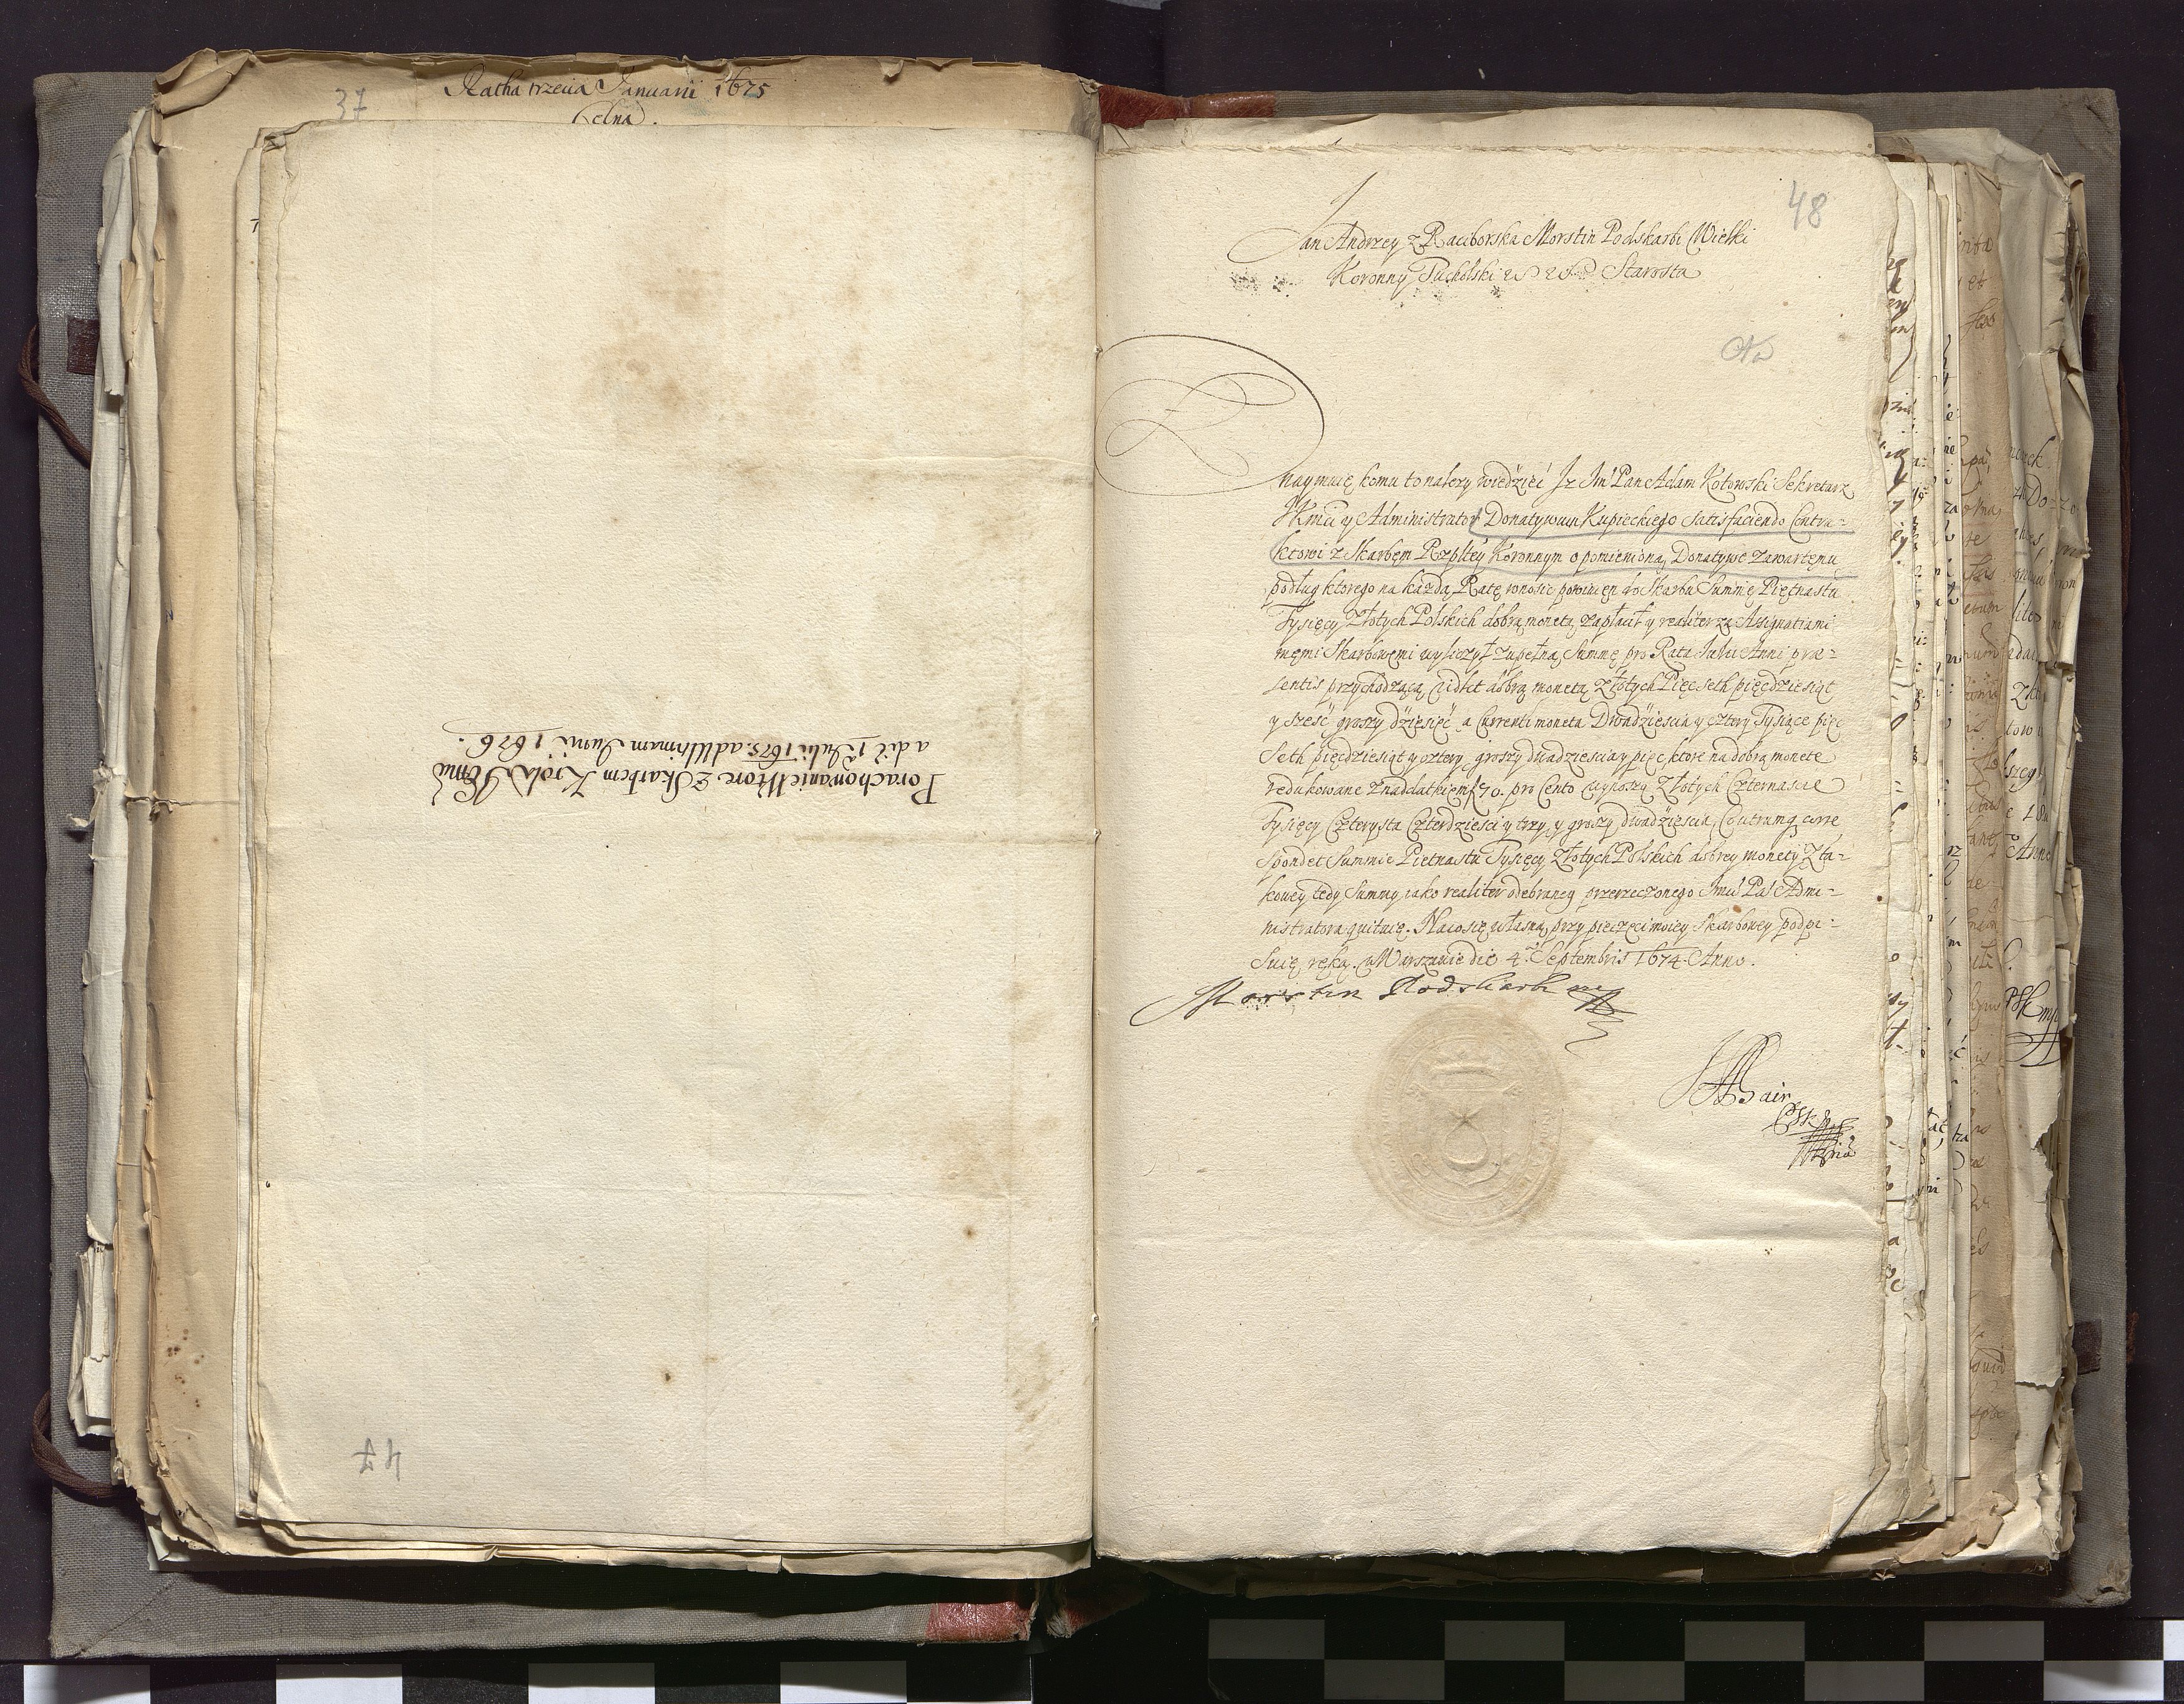 37
Ratha trzecia Januarii 1675
Celna.
Porachowanie Wtore z Skarbem Króla Jmci
a die 1 Julii 1675. ad Ultimam Junii 1676.
47
48
Jan Andrzey z Raciborska Morstin Podskarbi Wielki
Koronny Tucholski Starosta
Znaymuię komu to należy wiedzieć Jż Jm Pan Adam Kotowski Sekretarz
JKmci y Administrator Donatywum Kupieckiego satisfaciendo Contra=
ktowi z Skarbęm Rzpltey Koronnym o pomienioną Donatywę zawartemu
podług ktorego na każdą Ratę wnosic powinięn do Skarbu Summę Piętnastu
Tysięcy Złotych Polskich dobrą monetą zapłacił y realiter za Assignatiami
męmi Skarbowęmi wyliczył zupełną Summę pro Rata Julii Anni præ=
sentis przychodzącą, vidlt dobrą monetą Złotych Pięcseth pięcdziesiąt
y sześć groszy dzięsięć a Currenti moneta Dwadzieścia y cztery Tysiące pięc
Seth pięcdziesiąt y cztery groszy dwadzieścia y pięc, ktore na dobrą monetę
redukowane z naddatkiem 70. pro Cento wynoszą Złotych Czternascie
Tysięcy Czterysta Czterdzieści y trzy, y groszy dwadzieścia, Co utrumq corre
spondet Summie Piętnastu Tysięcy Złotych Polskich dobrey monety Z ta=
kowey tedy Summy iako realiter odebraney przerzeczonego Jmci Pa Admi=
nistratora quituię. Na co się własną przy pieczęci moiey Skarbowey podpi=
suię ręką. w Warszawie die 4. Septembris 1674. Anno.
Morstin Podskarbi